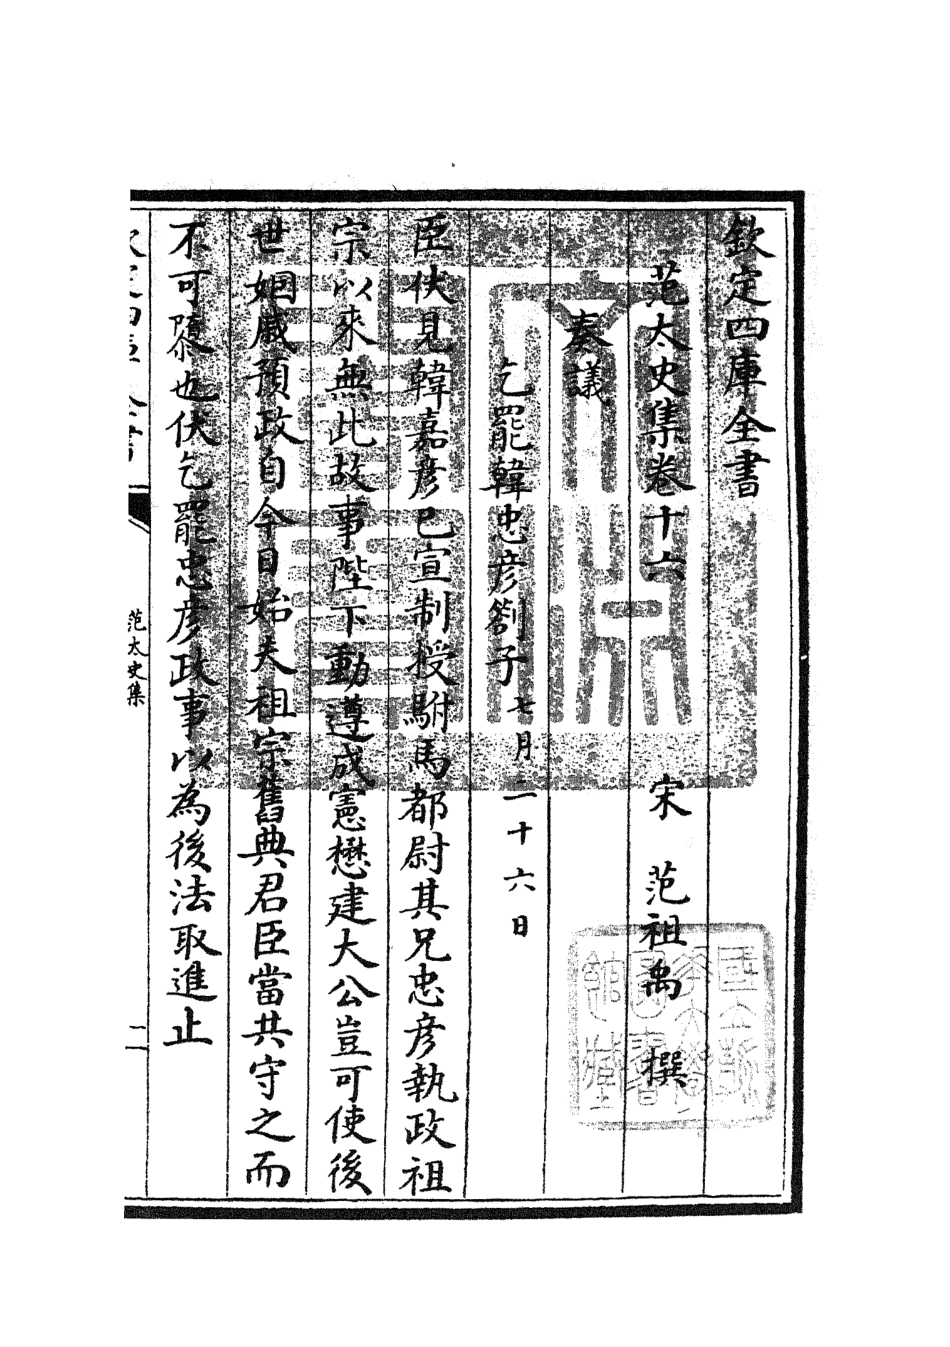 欽定四庫全書
范太史集卷十六　宋　范祖禹　撰
奏議
乞罷韓忠彦劄子七月二十六日
臣伏見韓嘉彦已宣制授駙馬都尉其兄忠彦執政祖
宗以來無此故事陛下動遵成憲懋建大公豈可使後
世姻戚預政自今日始夫祖宗舊典君臣當共守之而
不可隳也伏乞罷忠彦政事以為後法取進止
范太史集
二